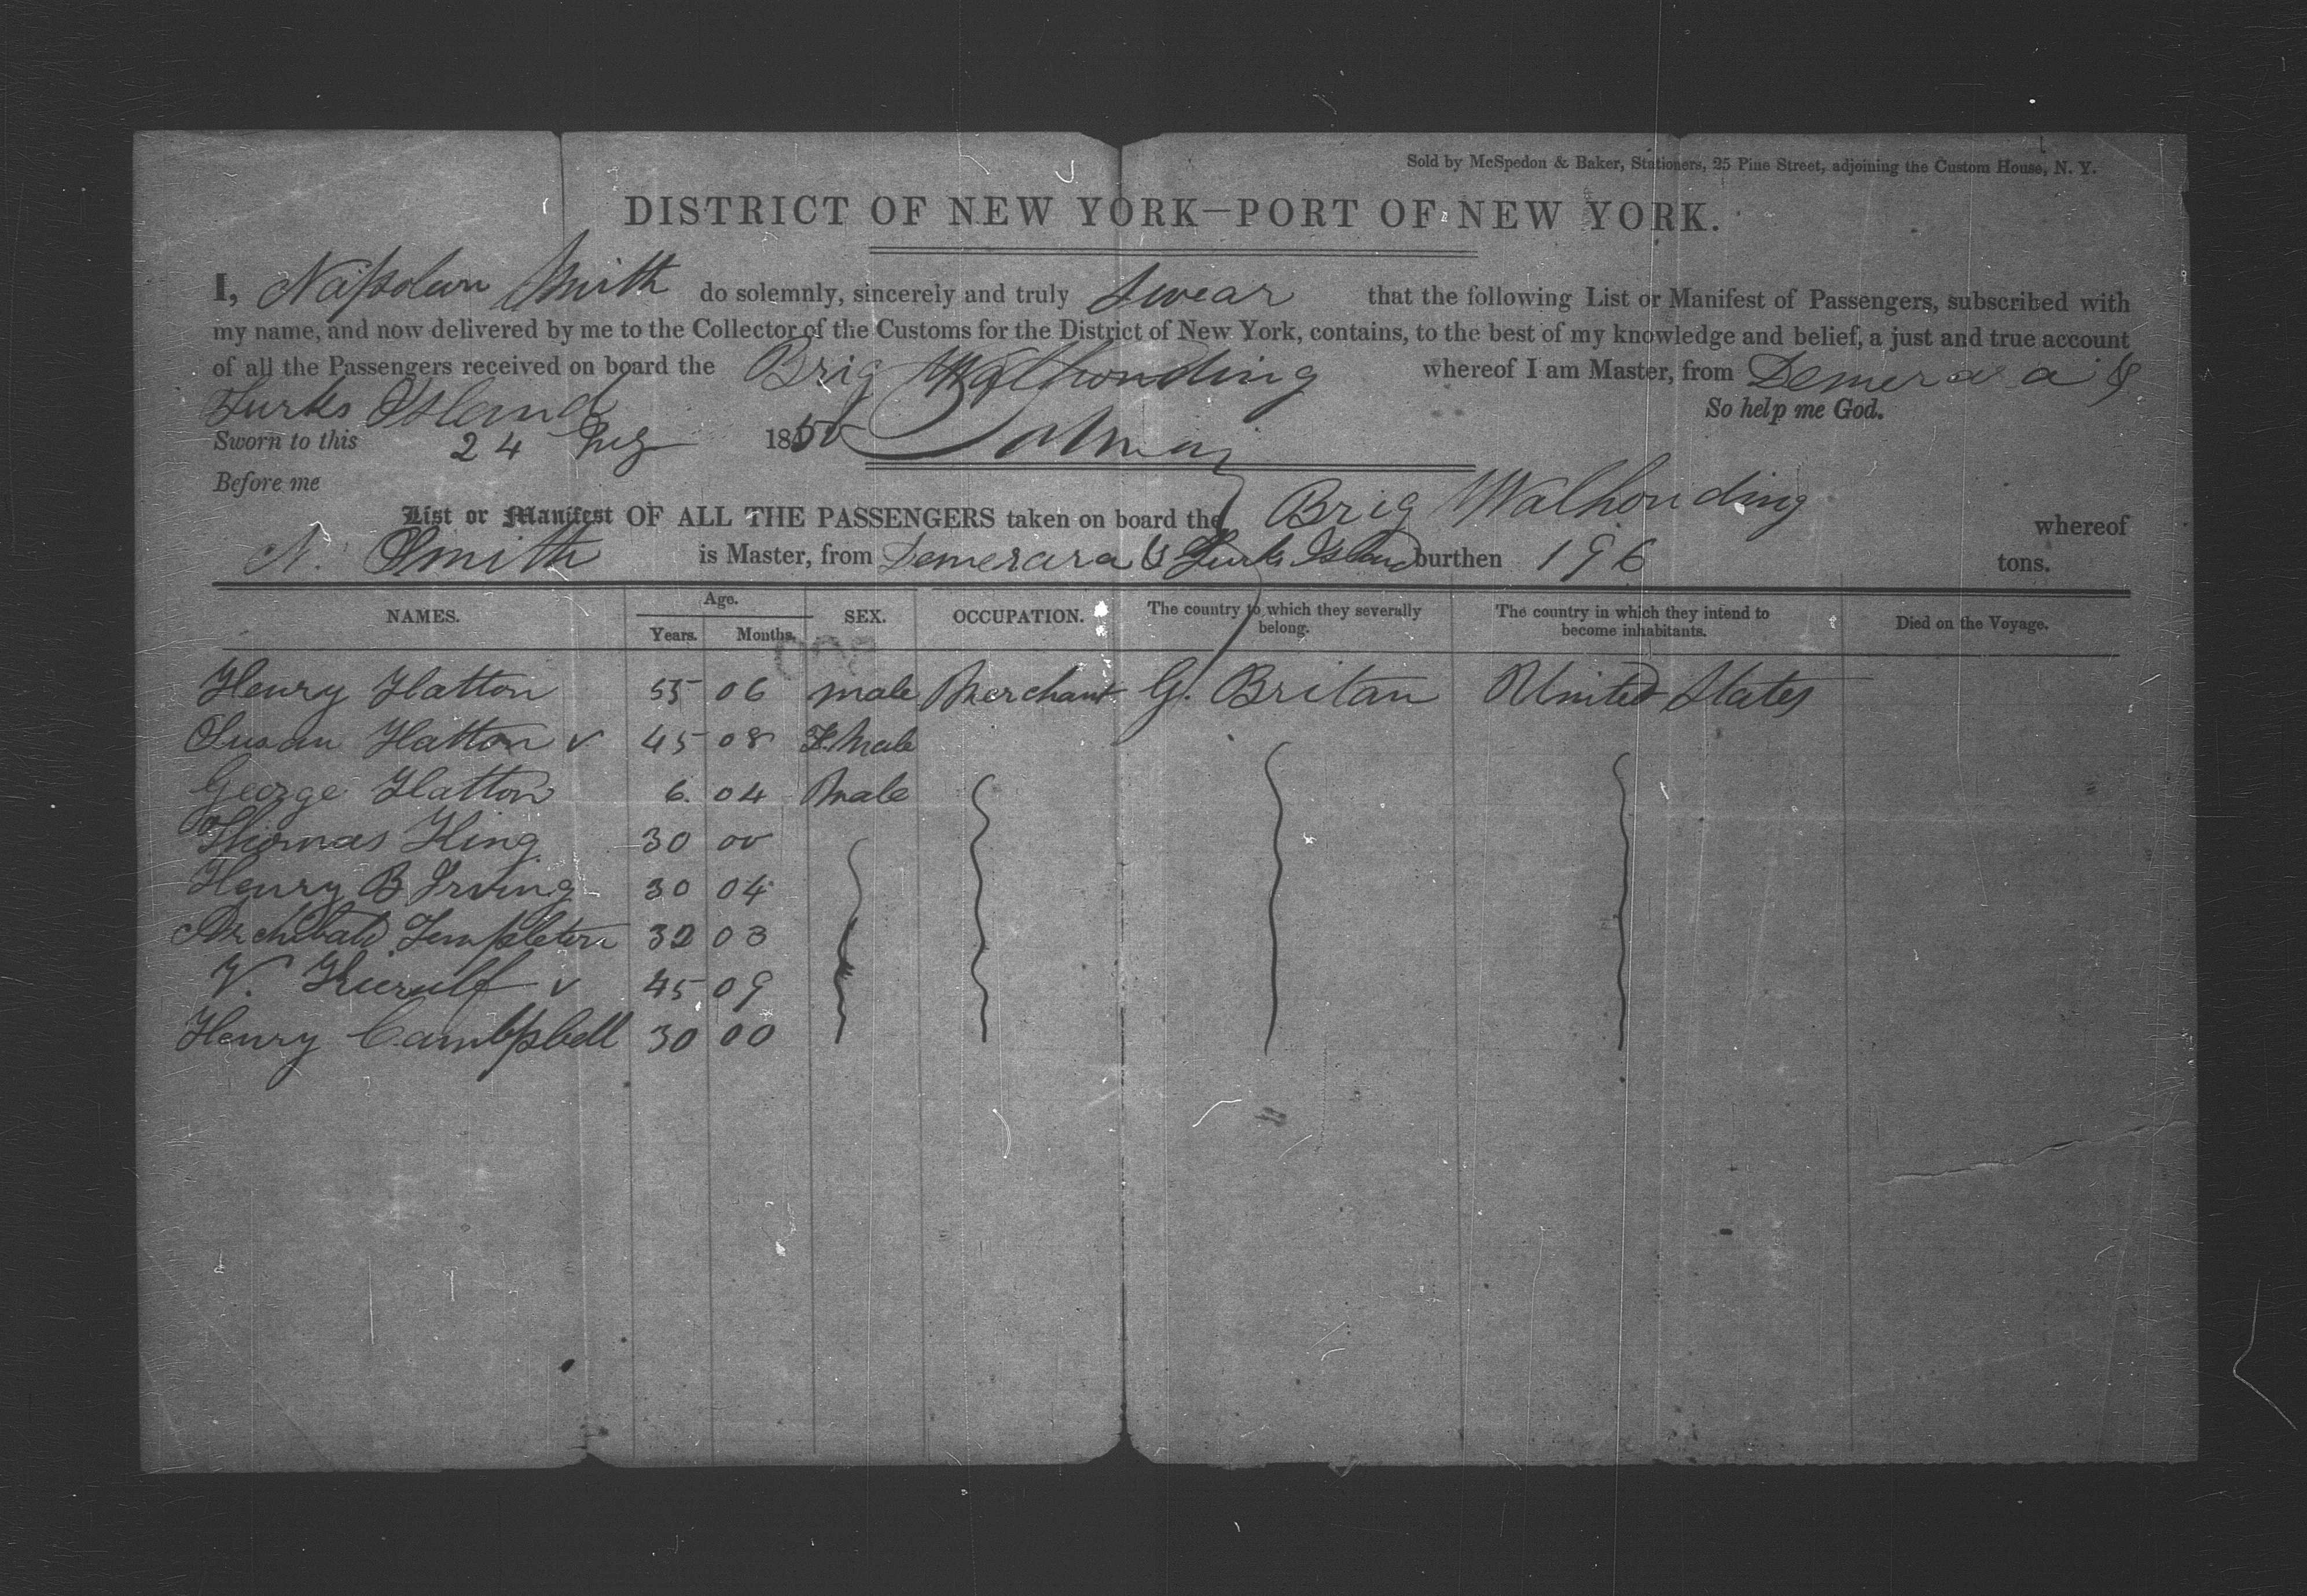 Sold by McSpedon & Baker, Stationers, 25 Pine Street, adjoining the Custom House, N. Y.
DISTRICT OF NEW YORK—PORT OF NEW YORK.
I, Napolean Smith do solemnly, sincerely and truly swear that the following List or Manifest of Passengers, subscribed with
my name, and now delivered by me to the Collector of the Customs for the District of New York, contains, to the best of my knowledge and belief, a just and true account
of all the Passengers received on board the Brig Walhonding whereof I am Master, from Demerara &
Turks Island So help me God.
Sworn to this 24 Aug 1850
Before me
List or Manifest OF ALL THE PASSENGERS taken on board the Brig Walhonding whereof
N. Smith is Master, from Demerara & Turks Island burthen 196 tons.
NAMES. Age. Years. Months. SEX. OCCUPATION. The country to which they severally belong. The country in which they intend to become inhabitants. Died on the Voyage.
Henry Hatton 55 06 male Merchant G. Britan United States
Susan Hatton v 45 08 F.Male
George Hatton 6. 04 Male
Thomas King 30 00
Henry B Irving 30 04
Archibald Templeton 32 03
V. v 45 09
Henry Cambpbell 30 00